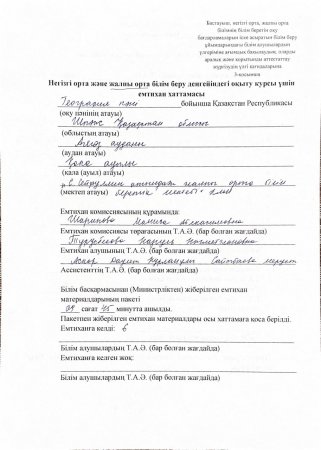 Бастауыш, негізгі орта, жалпы орта
білімнің білім беретін оқу
бағдарламаларын іске асыратын білім беру
ұйымдарындағы білім алушылардың
үлгеріміне ағымдық бақылаудың, оларды
аралық және қорытынды аттестаттау
жүргізудің үлгі қағидаларына
3-қосымша
Негізгі орта және жалпы орта білім беру деңгейіндегі оқыту курсы үшін
емтихан хаттамасы
География пәні бойынша Қазақстан Республикасы
(оқу пәнінің атауы)
Шығыс Қазақстан облысы
(облыстың атауы)
ауданы
(аудан атауы)
ауылы
(қала (ауыл) атауы)
жалпы орта білім
(мектеп атауы) беретін мектебі КММ
Емтихан комиссиясының құрамында:
Шарипова
Емтихан комиссиясы төрағасының Т.А.Ә. (бар болған жағдайда)
Емтихан алушының Т.А.Ә. (бар болған жағдайда)
Ассистенттің Т.А.Ә. (бар болған жағдайда)
Білім басқармасынан (Министрліктен) жіберілген емтихан
материалдарының пакеті
09 сағат 45 минутта ашылды.
Пакетпен жіберілген емтихан материалдары осы хаттамаға қоса берілді.
Емтиханға келді: 6
Білім алушылардың Т.А.Ә. (бар болған жағдайда)
Емтиханға келген жоқ:
Білім алушылардың Т.А.Ә. (бар болған жағдайда)